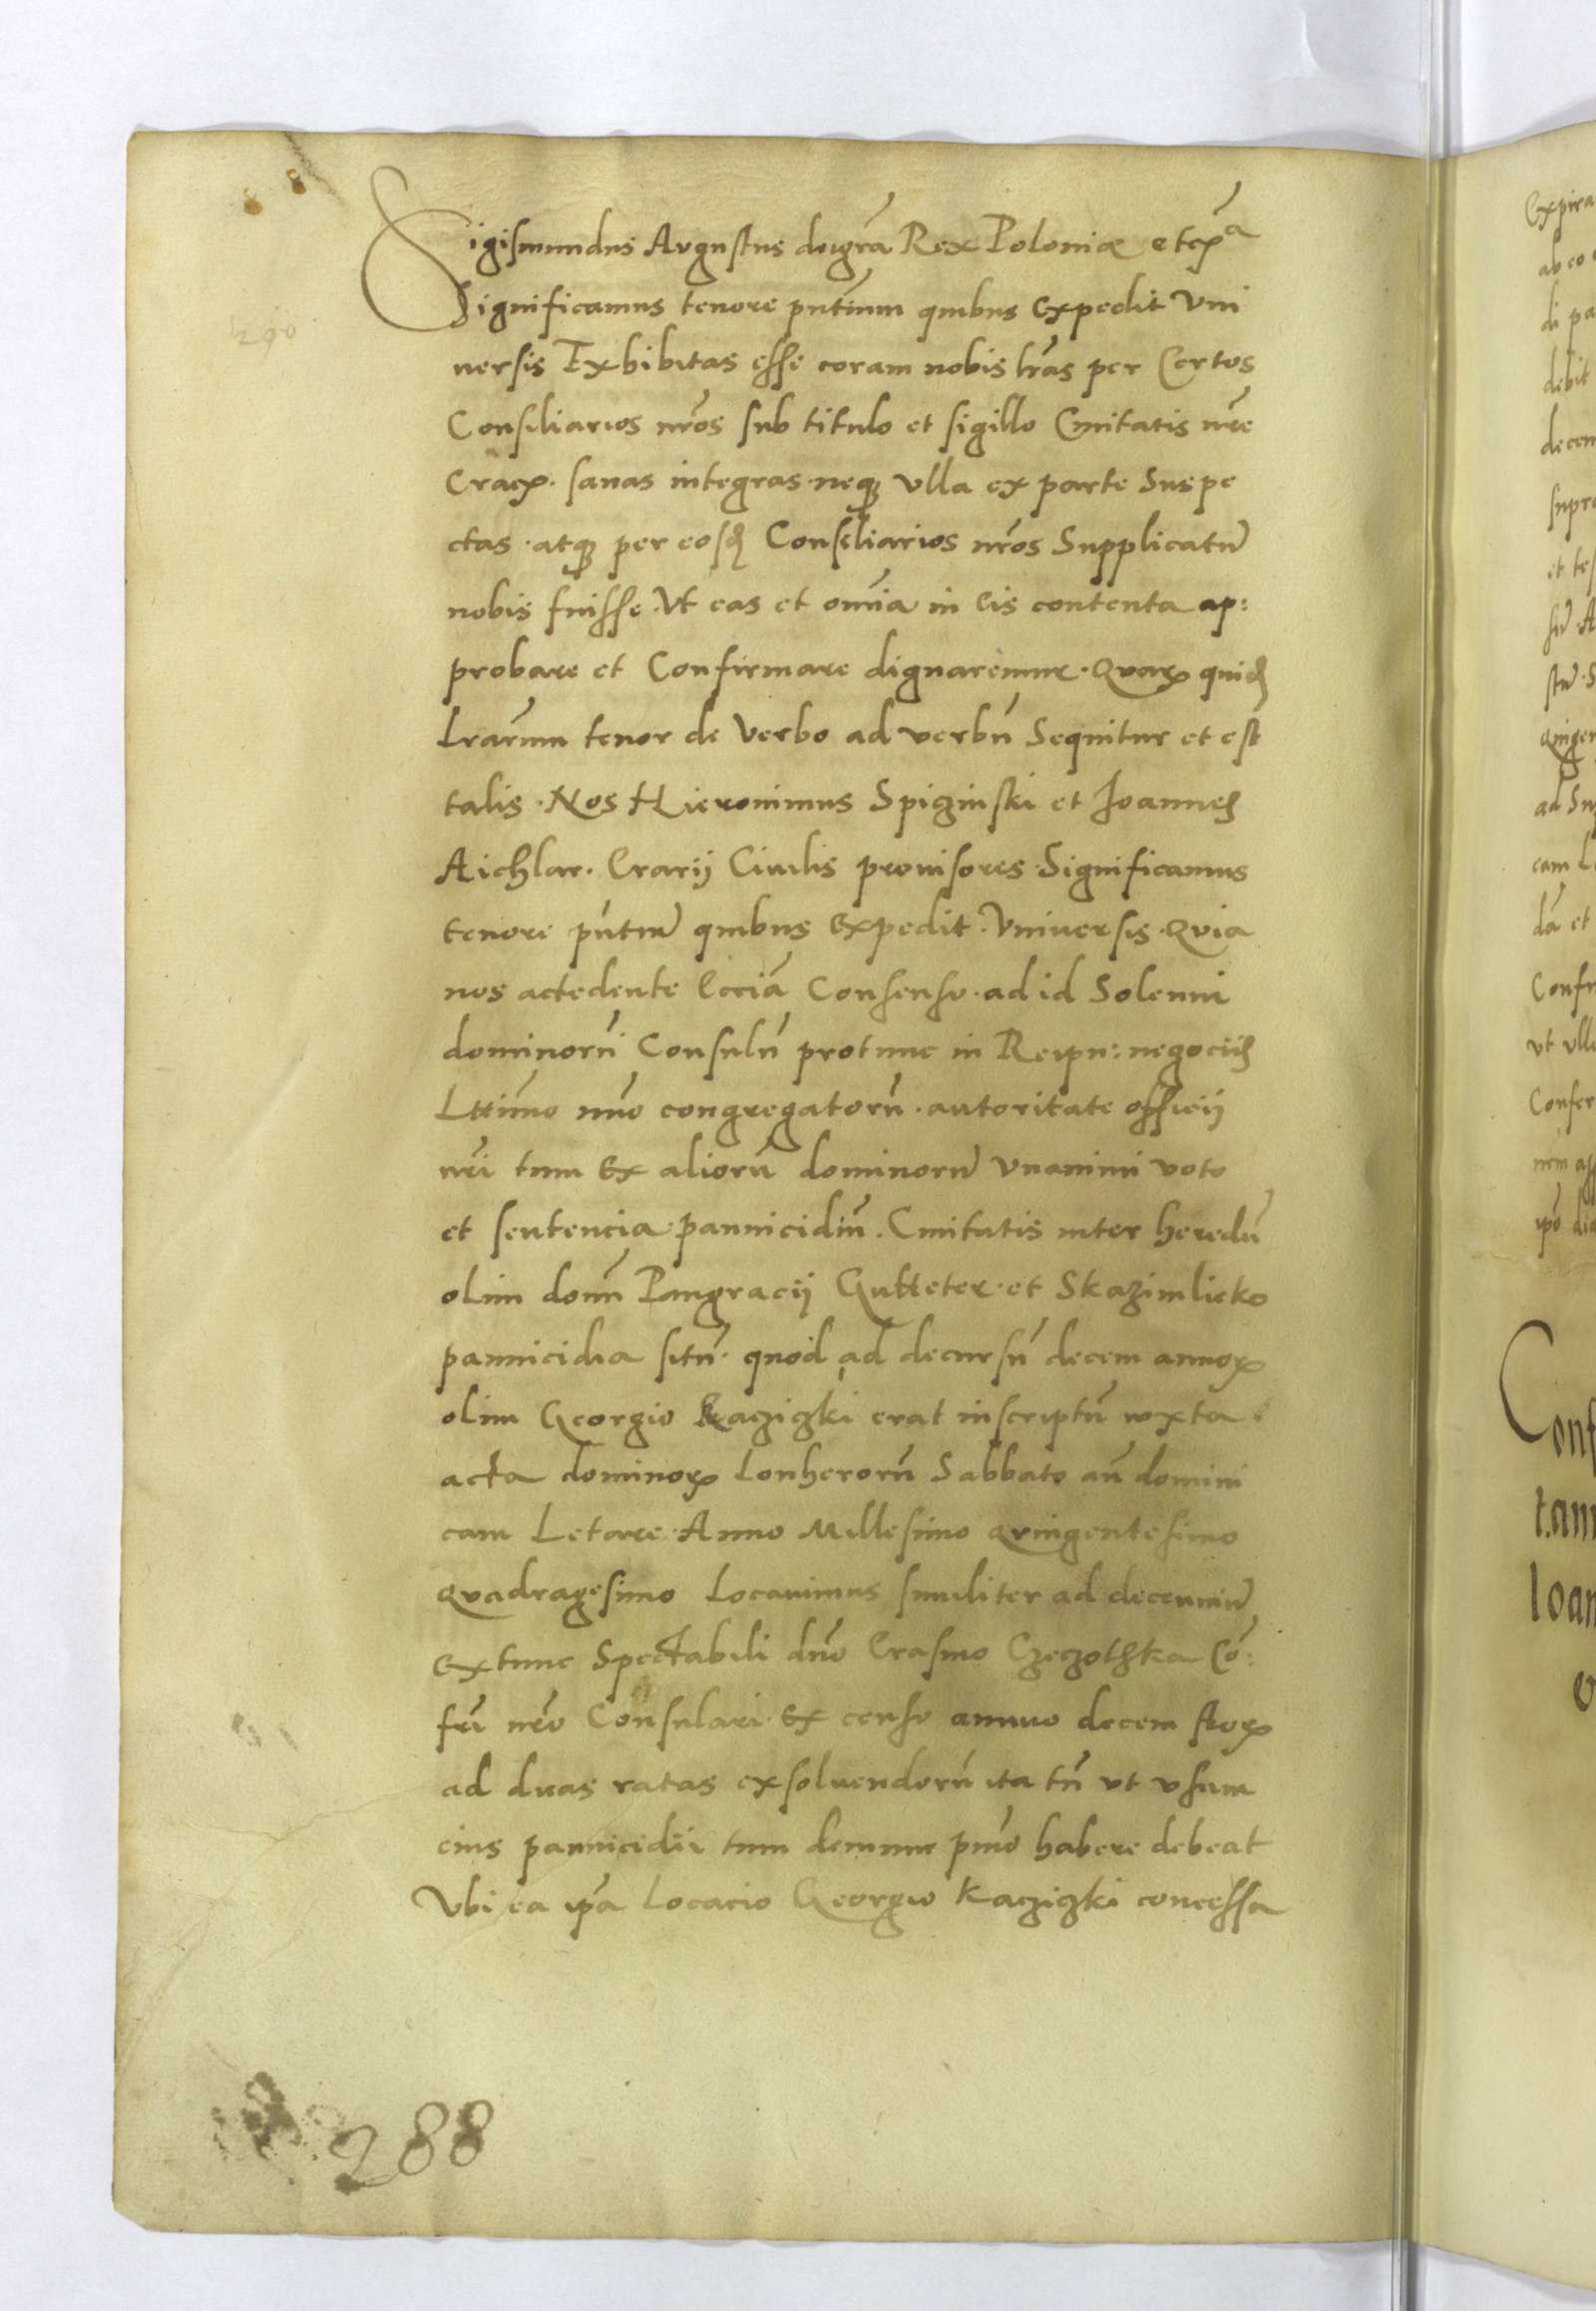 Sigismundus Augustus dei gr̃a Rex Poloniæ etcꝫª
Significamus tenore pñtium quibus expedit Vni
uersis Exhibitas esse coram nobis lr̃as per Certos
Consiliarios nr̃os sub titulo et sigillo Ciuitatis nr̃e
Cracꝫ. sanas integras neqꝫ vlla ex parte Suspe
ctas . atqꝫ per eosdꝫ Consiliarios nr̃os Supplicatũ
nobis fuisse . Vt eas et om̃ia in Eis contenta ap:
probare et Confirmare dignaremur . Quaꝝ quidꝫ
Lrãrum tenor de Verbo ad verbũ Sequitur et est
talis . Nos Hieronimus Spiginski et Joannes
Aichlar . Erarij Ciuilis prouisores Significamus
tenore pñtiũ quibus Expedit . Vniuersis . Quia
nos actedente Ecciã Consensu . ad id Solenni
dominorũ Consulũ protunc in Reipu: negociis
Lttimo nũo congregatorũ . autoritate officij
nr̃i tum Ex aliorũ dominorũ Vnanimi voto
et sentencia pannicidiũ . Ciuitatis inter heredũ
olim domñ Pangracij Gutteter . et Skazimlicko
pannicidia sitũ . quod ad decursũ decem annoꝝ
olim Georgio Kaczigki erat inscriptũ iuxta
acta dominoꝝ Lonherorũ Sabbato añ domini
cam Letare . Anno Millesimo quingentesimo
Quadragesimo Locauimus similiter ad decenniũ
Extunc Spectabili dño Erasmo Czeczothka Cõ:
fr̃i nr̃o Consulari . Ex censu annuo decem floꝝ
ad duas ratas exsoluendorũ ita tñ vt vsum
eius pannicidii tum demum pmo habere debeat
Vbi ea ipã Locacio Georgio Kaczigki concessa
290
288